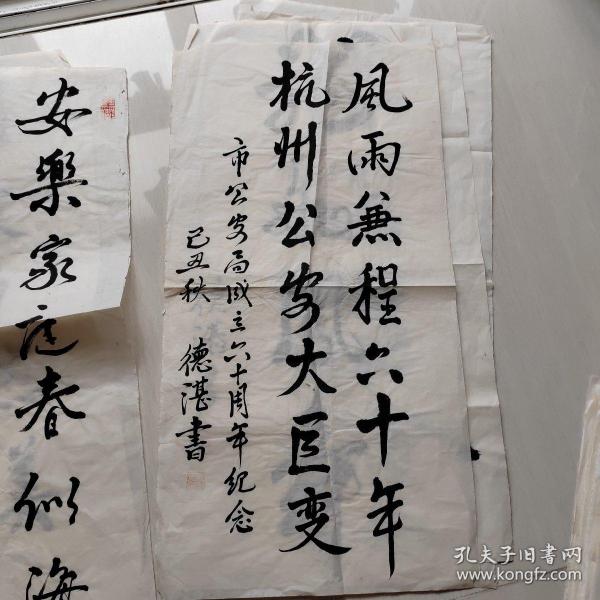 風雨兼程六十年
杭州公安大巨变
市公安局成立六十周年纪念
己丑秋 德湛書
安樂家庭春似海
孔夫子旧書网
www.kongfz.com